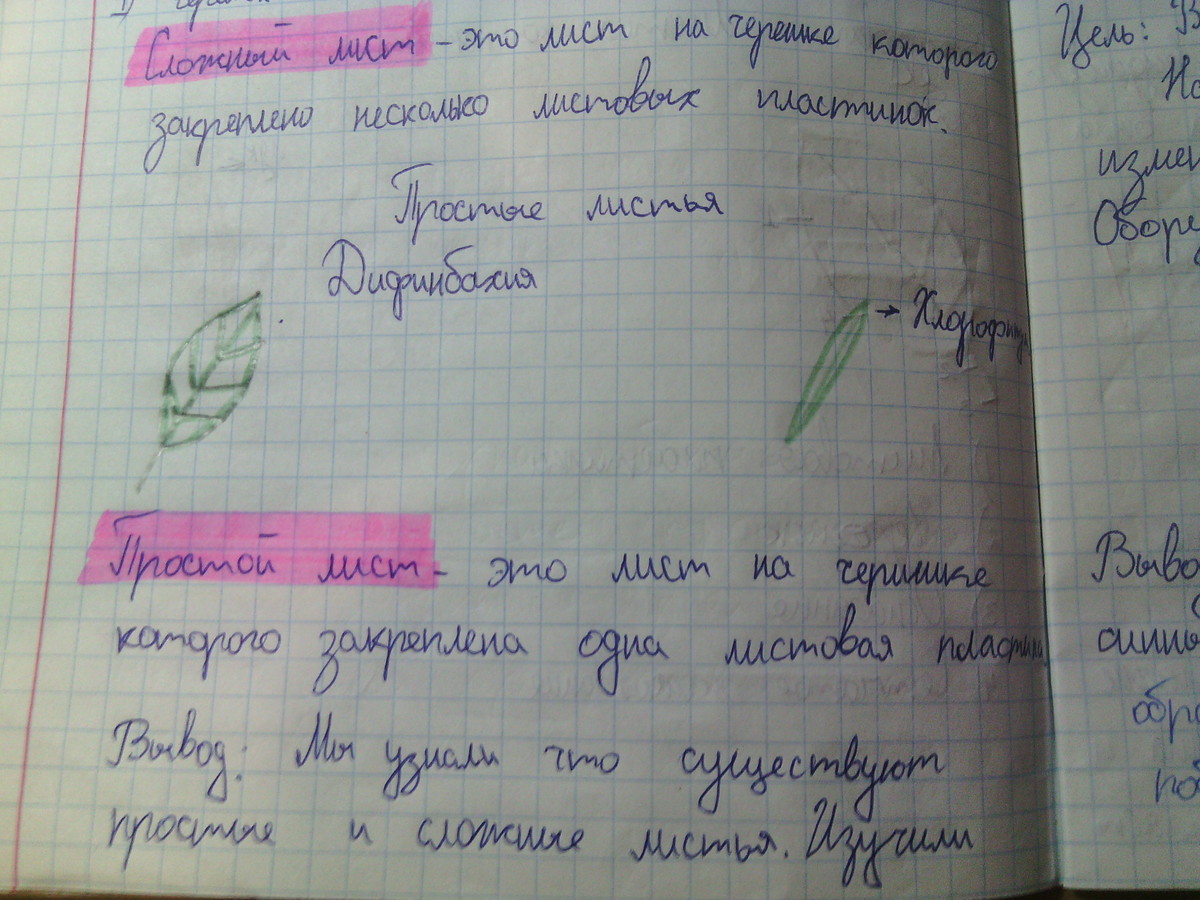 Сложный лист - это лист на черешке которого
закреплено несколько листовых пластинок.
Простые листья
Дифинбахия
→ Хлорофитум
Простой лист - это лист на черишке
которого закреплена одна листовая пластин
Вывод: Мы узнали что существуют
простые и сложные листья. Изучили
Цель:
На
измен
Обору
Выво
синны
обра
поб